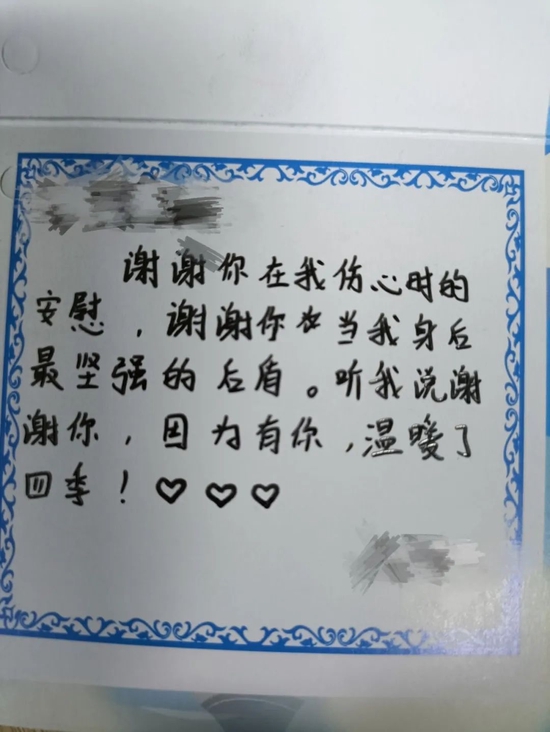 谢谢你在我伤心时的
安慰，谢谢你当我身后
最坚强的后盾。听我说谢
谢你，因为有你，温暖了
四季！♡♡♡